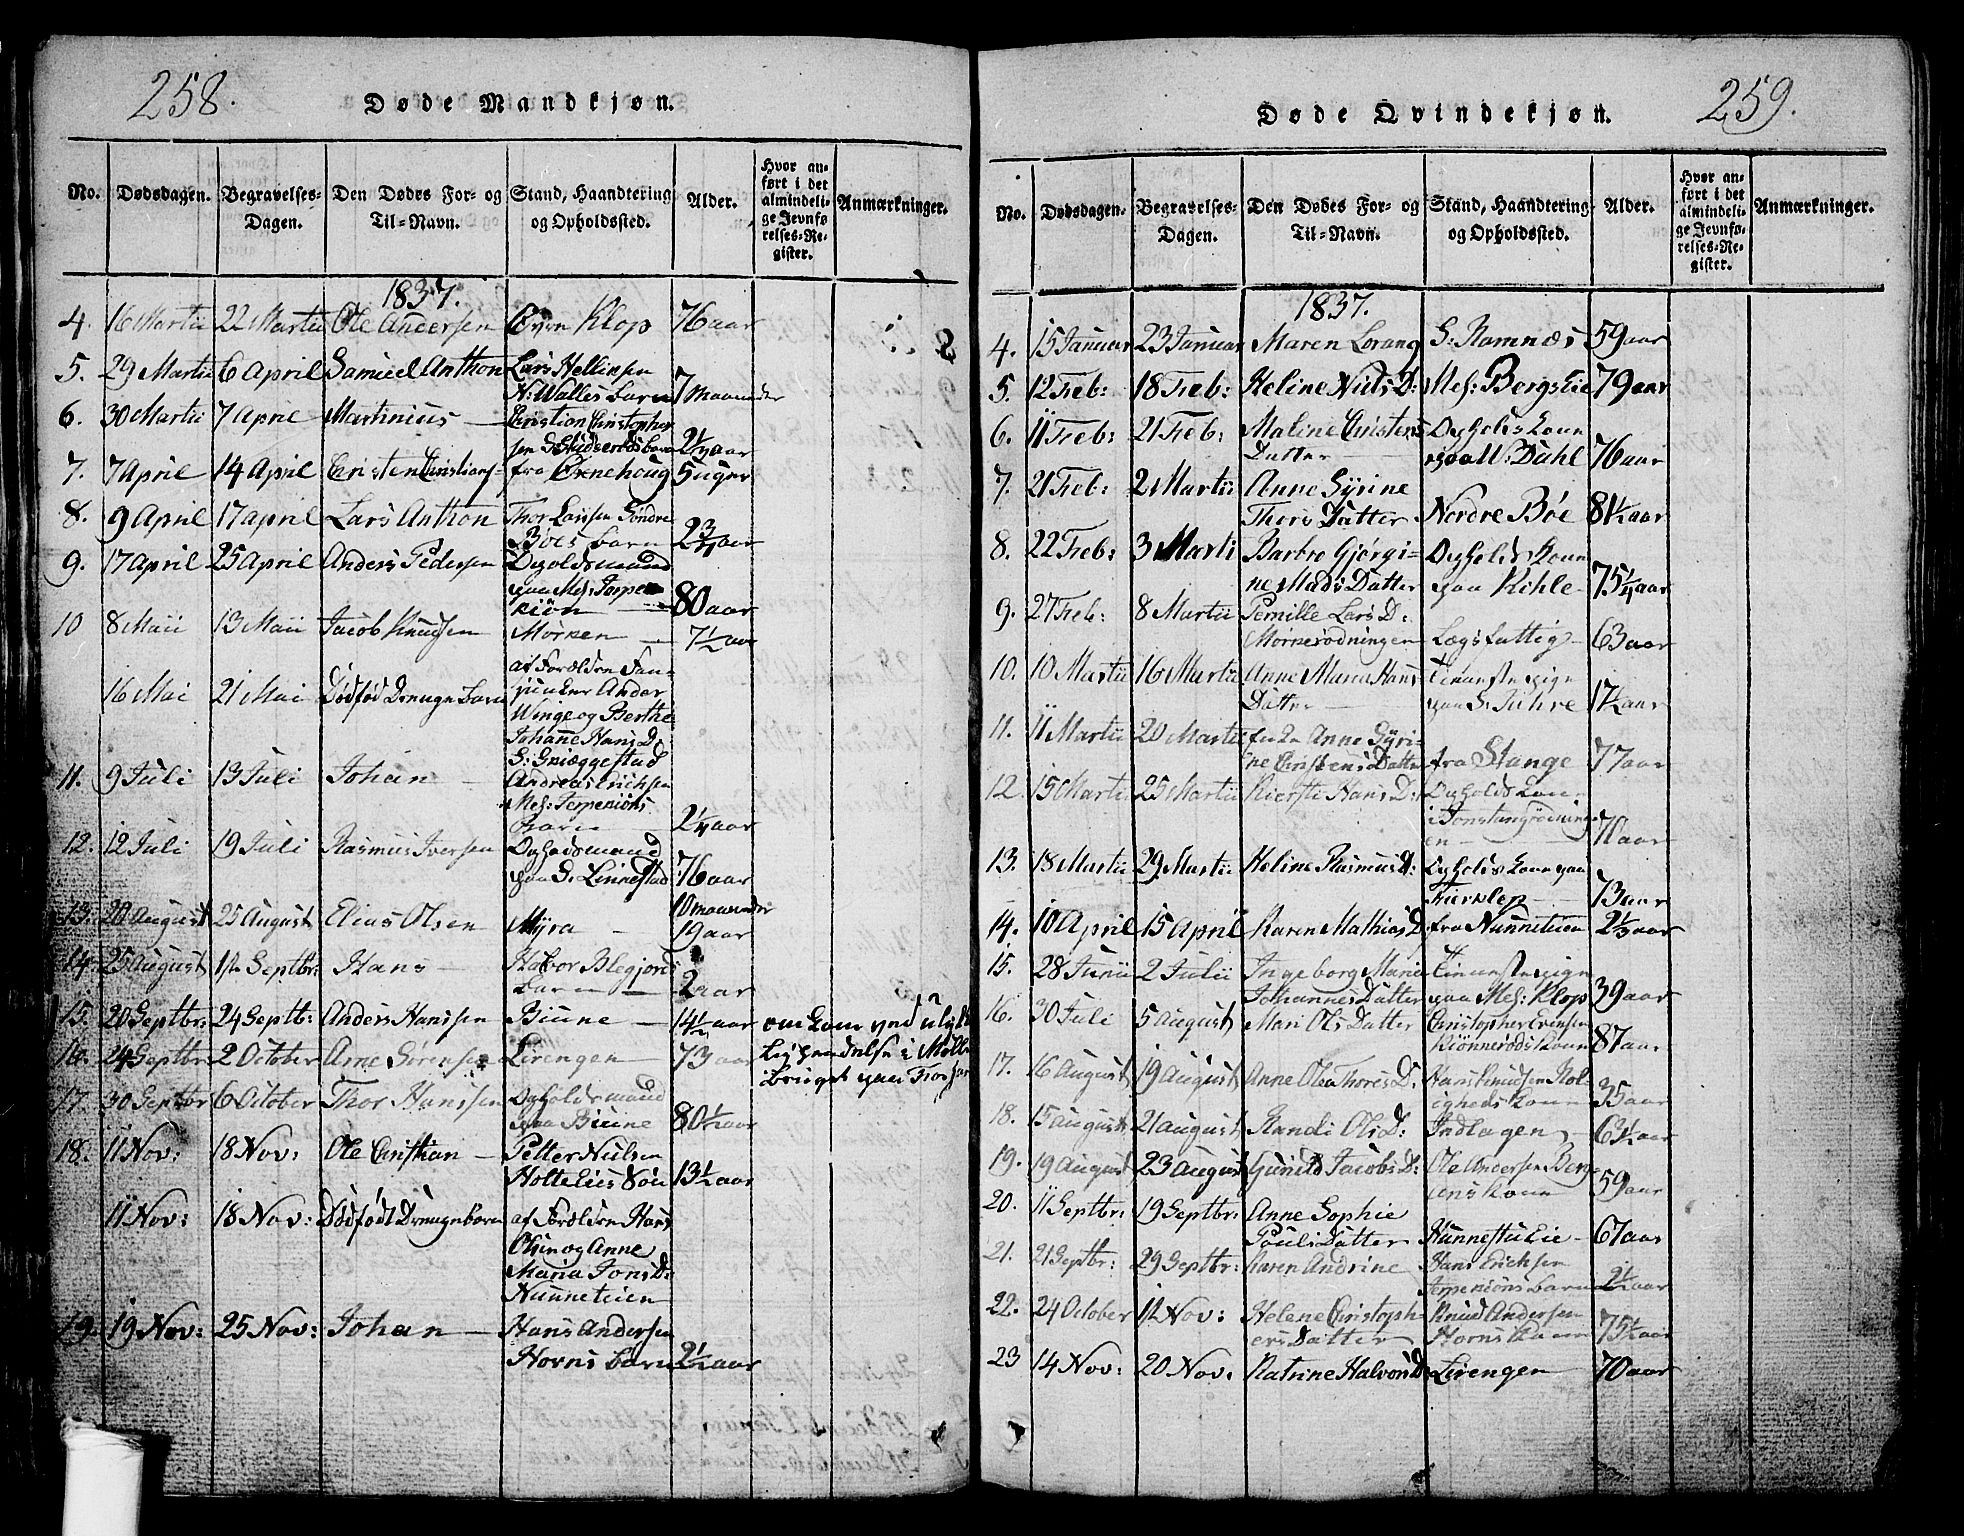 258.
Døde Mandkjøn.
No. Dødsdagen. Begravelses-Dagen. Den Dødes For- og Til-Navn. Stand, Haandtering og Opholdssted. Alder. Hvor anført i det almindelige Jevnførelses-Register. Anmærkninger.
1837.
4. 16 Martii 22 Martii Ole Andersen Øvre Klop 76 aar
5. 29 Martii 6 April Samuel Anthon Lars Hellissen
N: Walles barn 7 maaneder
6. 30 Martii 7 April Martinius Christian Christopher
sen S: barn 2½ aar
7. 7 April 14 April Christen Christians- fra Ørnehoug 5 uger
8. 9 April 17 April Lars Anthon Thor Larssen Söndre
Böes barn 2¾ aar
9. 17 April 25 April Anders Pedersen Opholdsmand
paa Mel: Jorpe-
riön 80 aar
10 8 Maii 13 Maii Jacob Knudsen Mörken 7½ aar
16 Mai 21 Mai Dödföd Drengebarn af Forældre Fan-
junker Ander
Winge og Berthe
Johanne Hans D:
S: Griæggestad
11. 9 Juli 13 Juli Johan Andreas Erichsen
Mel: Jerperiöns
Barn 2¼ aar
12. 12 Juli 19 Juli Rasmus Iversen Opholdsmand
paa S: Linnestad 76 aar
13. 20 August 25 August Elias Olsen Myra 10 maaneder
19 aar
14. 25 August 1ste Septbr: Hans Habor Blegjords
Barn 2 aar
15. 20 Septbr: 24 Septb: Anders Hanssen Biune 14½ aar omkom ved ulyk
16. 24 Septbr: 2 October Arne Sörensen Lirengen 73 aar
bruget paa
17. 30 Septbr 6 October Thor Hanssen Opholdsmand
paa Biune 80½ aar
18. 11 Nov: 18 Nov: Ole Christian Petter Nielsen
Holtelies Sön 13½ aar
11 Nov: 18 Nov: Dödfödt Drengebarn af Forældre Hans
Olsen og Anne
Maria Jons D:
Hunnetuien
19. 19 Nov: 25 Nov: Johan Hans Andersen
Horns barn 2½ aar
259.
Døde Qvindekjøn.
No. Dødsdagen. Begravelses-Dagen. Den Dødes For- og Til-Navn. Stand, Haandtering og Opholdssted. Alder. Hvor anført i det almindelige Jevnførelses-Register. Anmærkninger.
1837.
4. 15 Januar 23 Januar Maren Lorang S: Ramnæs 59 aar
5. 12 Feb: 18 Feb: Heline Niels D: Mel: Bergslie 79 aar
6. 11 Feb: 21 Feb: Maline Christens
Datter Opholdskone
paa W: Dahl 76 aar
7. 21 Feb: 2 Martii Anne Syrine
Thors Datter Nordre Böe 81½ aar
8. 22 Feb: 3 Marti Barbro Gjörgi-
ne Mads Datter Opholdskone
paa Kihle 75¼ aar
9. 27 Feb: 8 Martii Pernille Lars D:
Mörnerödningen Lægsfattig 63 aar
10. 10 Martii 16 Martii Anne Maria Hans
Datter Tienestepige
paa S: Fuhre 17½ aar
11. 11 Martii 20 Martii Anne Syri-
ne Christens Datter fra Stange 77 aar
12. 15 Marti 25 Martii Kiersti Hans D: Opholdskone
i Tonstangrödning-
en 70 aar
13. 18 Martii 29 Martii Heline Rasmus D: Opholdskone paa
Fierklep 73 aar
14. 10 April 15 April Karen Mathias D fra Hunnetuen 2⅓ aar
15. 28 Junii 2 Julii Ingeborg Maria
Johannes Datter Tienestepige
paa Mel: Klop 39 aar
16. 30 Juli 5 August Mari Ols Datter Christopher Evensen
Kiönneröds Kone 87 aar
17. 16 August 19 August Anne Olea Thores D: Hans Knudsen Rol-
igheds Kone 35 aar
18. 15 August 21 August Randi Ols D: Indlagen 63½ aar
19. 19 August 23 August Gunild Jacobs D: Ole Andersen Berg-
ens Kone 59 aar
20. 11 Septbr: 19 Septbr: Anne Sophie
Pauls Datter Hunnestulie 67 aar
21. 21 Septbr: 29 Septbr: Karen Andrine Hans Erichsen
Jerperiöns barn 2½ aar
22. 24 October 1ste Nov: Helene Christoph-
ers Datter Knud Andersen
Horns Kone 75½ aar
23 14 Nov: 20 Nov: Katrine Halvors D Lirengen 70 aar